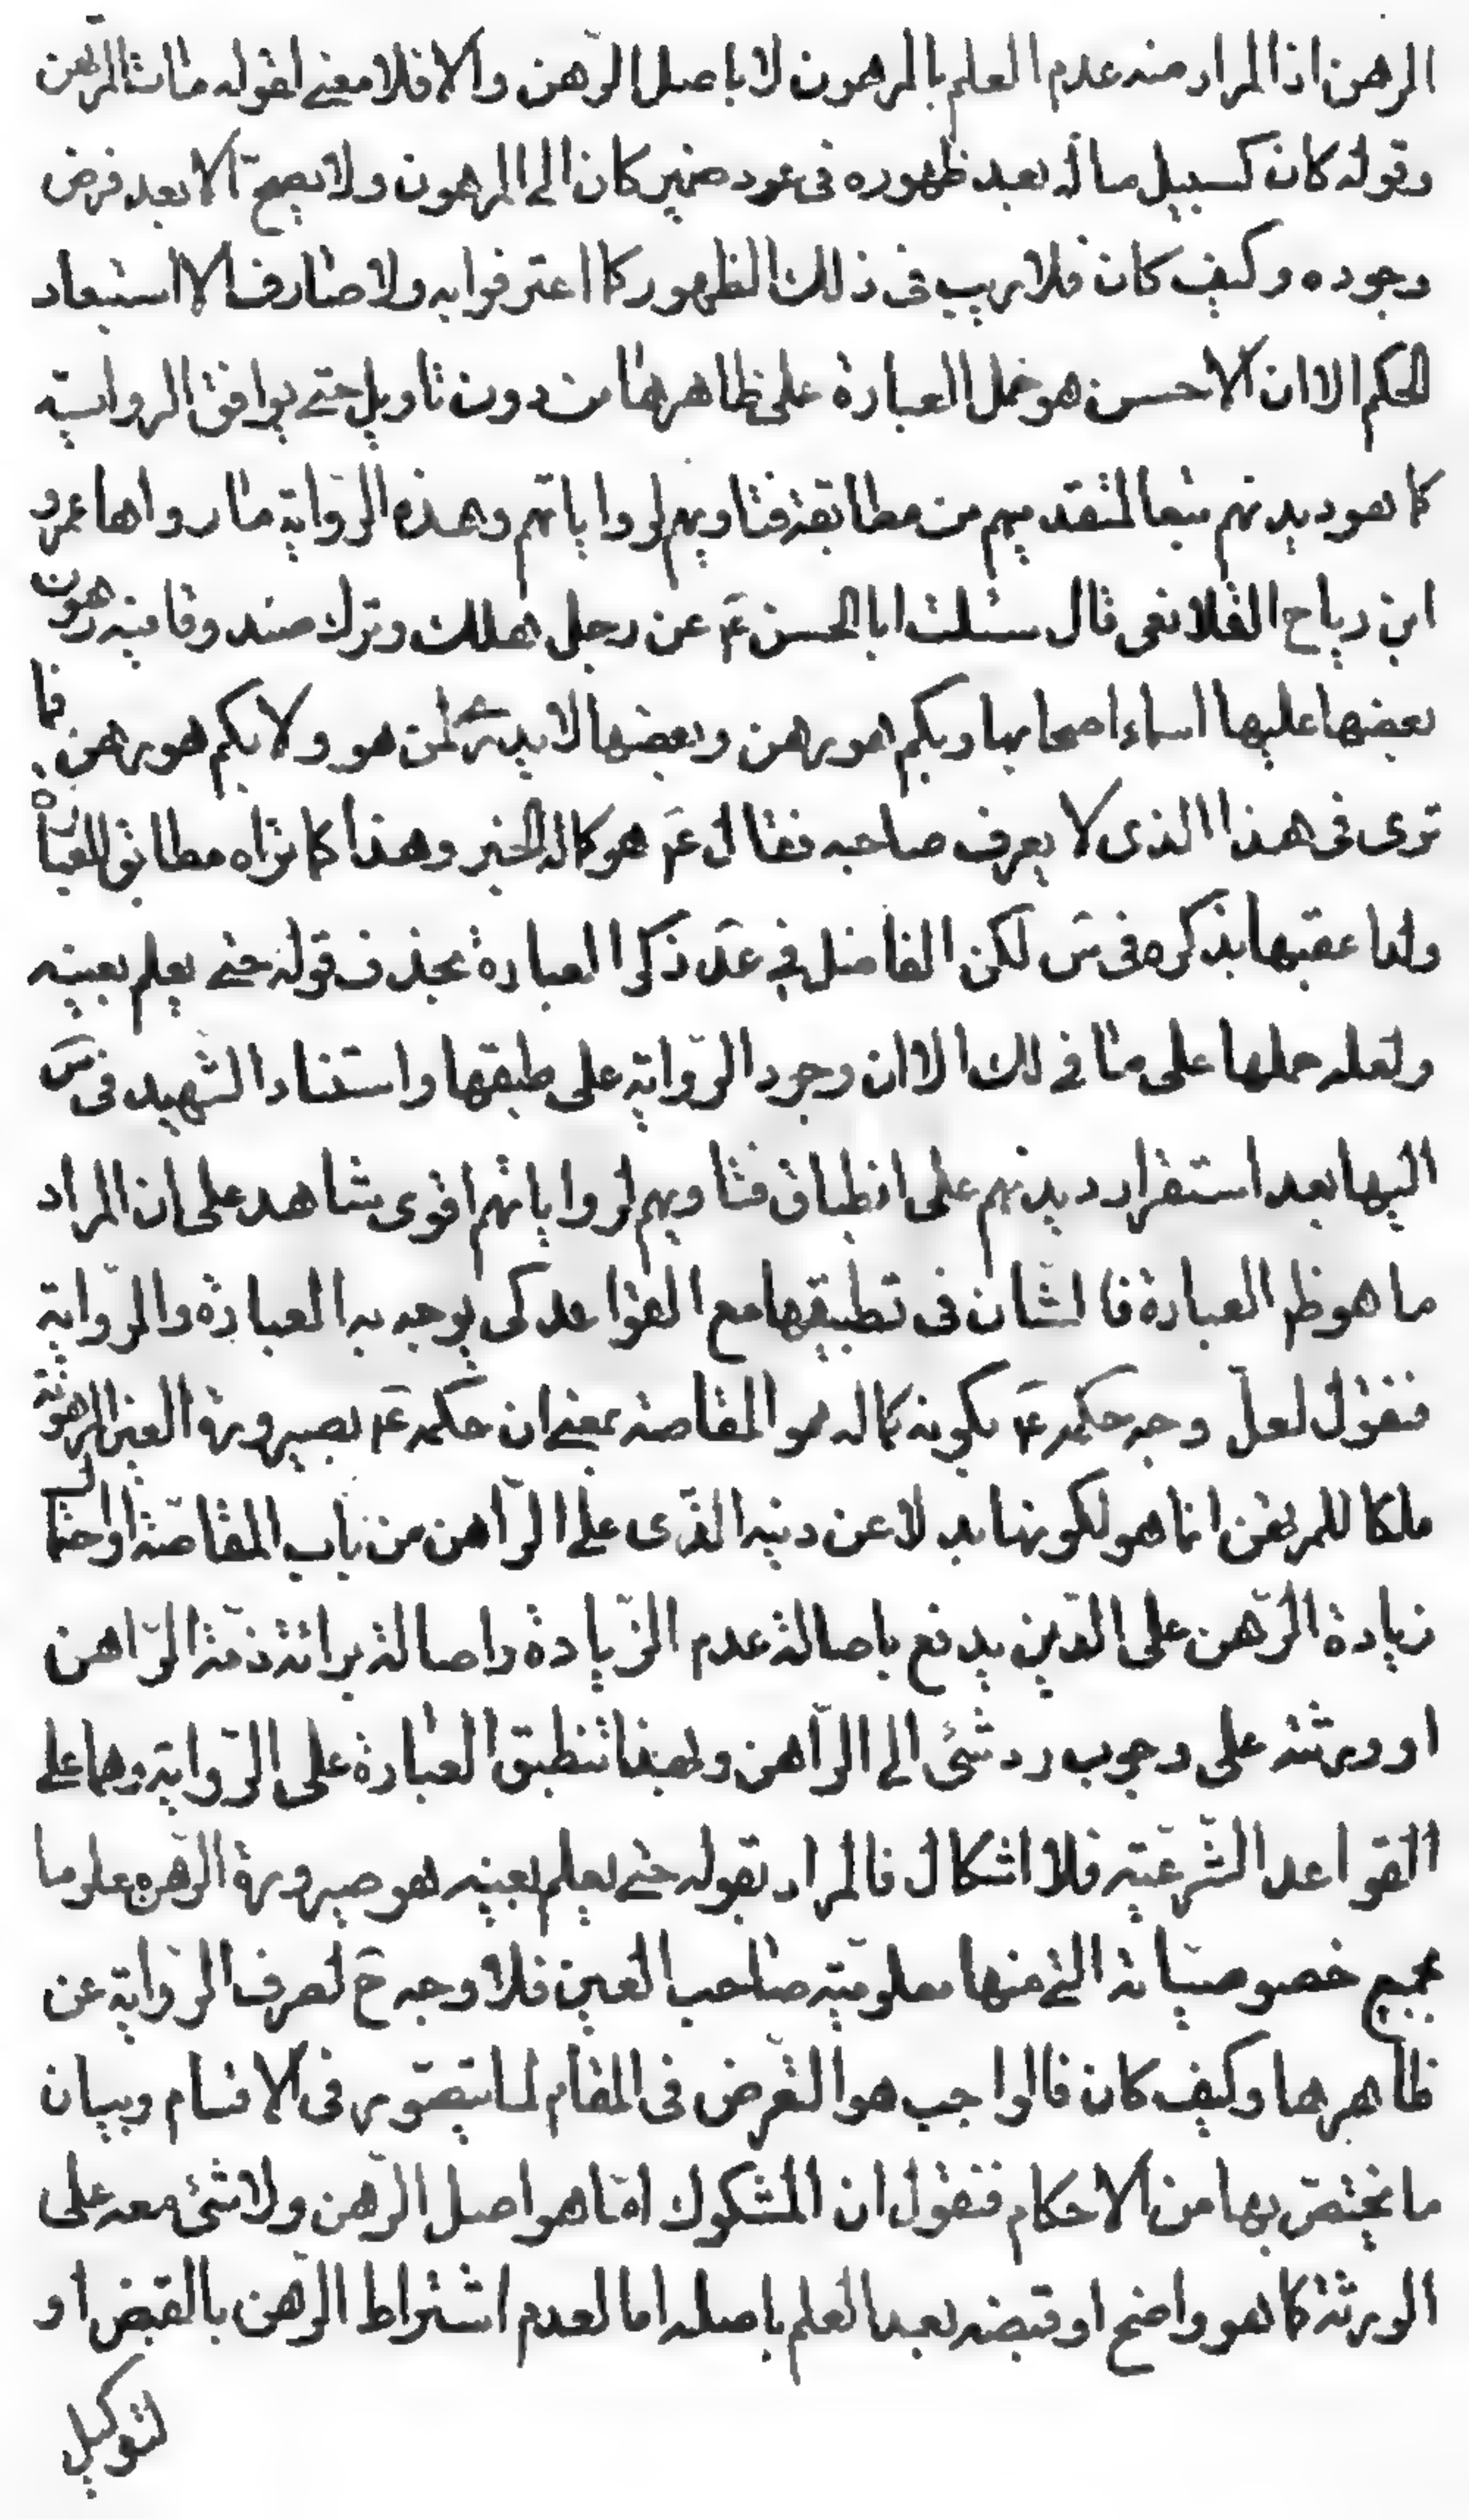 الرهن اذ المراد منه عدم العلم بالمرهون لا باصل الرّهن والا فلا معنى لقوله مات المرتهن
وقوله كان كسبيل ماله بعد ظهوره فى عود ضمير كان الى المرهون ولا يصحّ الا بعد فرض
وجوده وكيف كان فلا ريب فى ذلك الظهور كما اعترفوا به ولا صارف الا استبعاد
الحكم الا ان الاحسن هو حمل العبارة على ظاهرها من دون تاويل حتى يوافق الرواية
كما هو ديدنهم تبعا لمتقدميهم من مطابقة فتاويهم لرواياتهم وهذه الرّواية ما رواها عمرو
ابن رياح القلا نعى قال سئلت ابا الحسن عَ عن رجل هلك وترك صندوقا فيه رهون
بعضها عليها اسماء اصحابها وبكم هو رهن وبعضها لا يدرى لمن هو ولا بكم هو رهن فما
ترى فى هذا الذى لا يعرف صاحبه فقال عَ هو كماله الخبر وهذا كما تراه مطابق للعبارة
ولذا عقبها بذكره فى سَ لكن الفاضل في عَد ذكر العبارة بحذف قوله حتى يعلم بعينه
ولعله حملها على ما فى لك الا ان وجود الرّواية على طبقها واستناد الشهيد فى سَ
اليها بعد استقرار ديدنهم على انطباق فتاويهم لرواياتهم اقوى شاهد على ان المراد
ما هو ظ العبارة فالشان فى تطبيقها مع القواعد كى يوجه به العبارة والرّواية
فنقول لعلّ وجه حكمه عَ بكونه كماله هو المقاصة بمعنى ان حكمه عَ بصيرورة العين المرهونة
ملكا للمرتهن انما هو لكونها بدلا عن دينه الّذى على الرّاهن من باب المقاصّة واحتمال
زيادة الرّهن على الدّين يدفع باصالة عدم الزّيادة واصالة برائة ذمّة الرّاهن
او ورثته على وجوب رد شئ الى الرّاهن وبهذا تنطبق العبارة على الرّواية وهما على
القواعد الشّرعيّة فلا اشكال فالمراد بقوله حتى يعلم بعينه هو صيرورة الرّهن معلوما
بجميع خصوصيّاته التى منها معلوميّة صاحب العين فلا وجه حَ لصرف الرّواية عن
ظاهرها وكيف كان فالواجب هو التّعرض فى المقام لما يتصوّر فى الاقسام وبيان
ما يختصّ بها من الاحكام فنقول ان المشكوك امّا هو اصل الرّهن ولا شئ معه على
الورثة كما هو واضح او قبضه بعد العلم باصله اما لعدم اشتراط الرّهن بالقبض او
لتوكيل